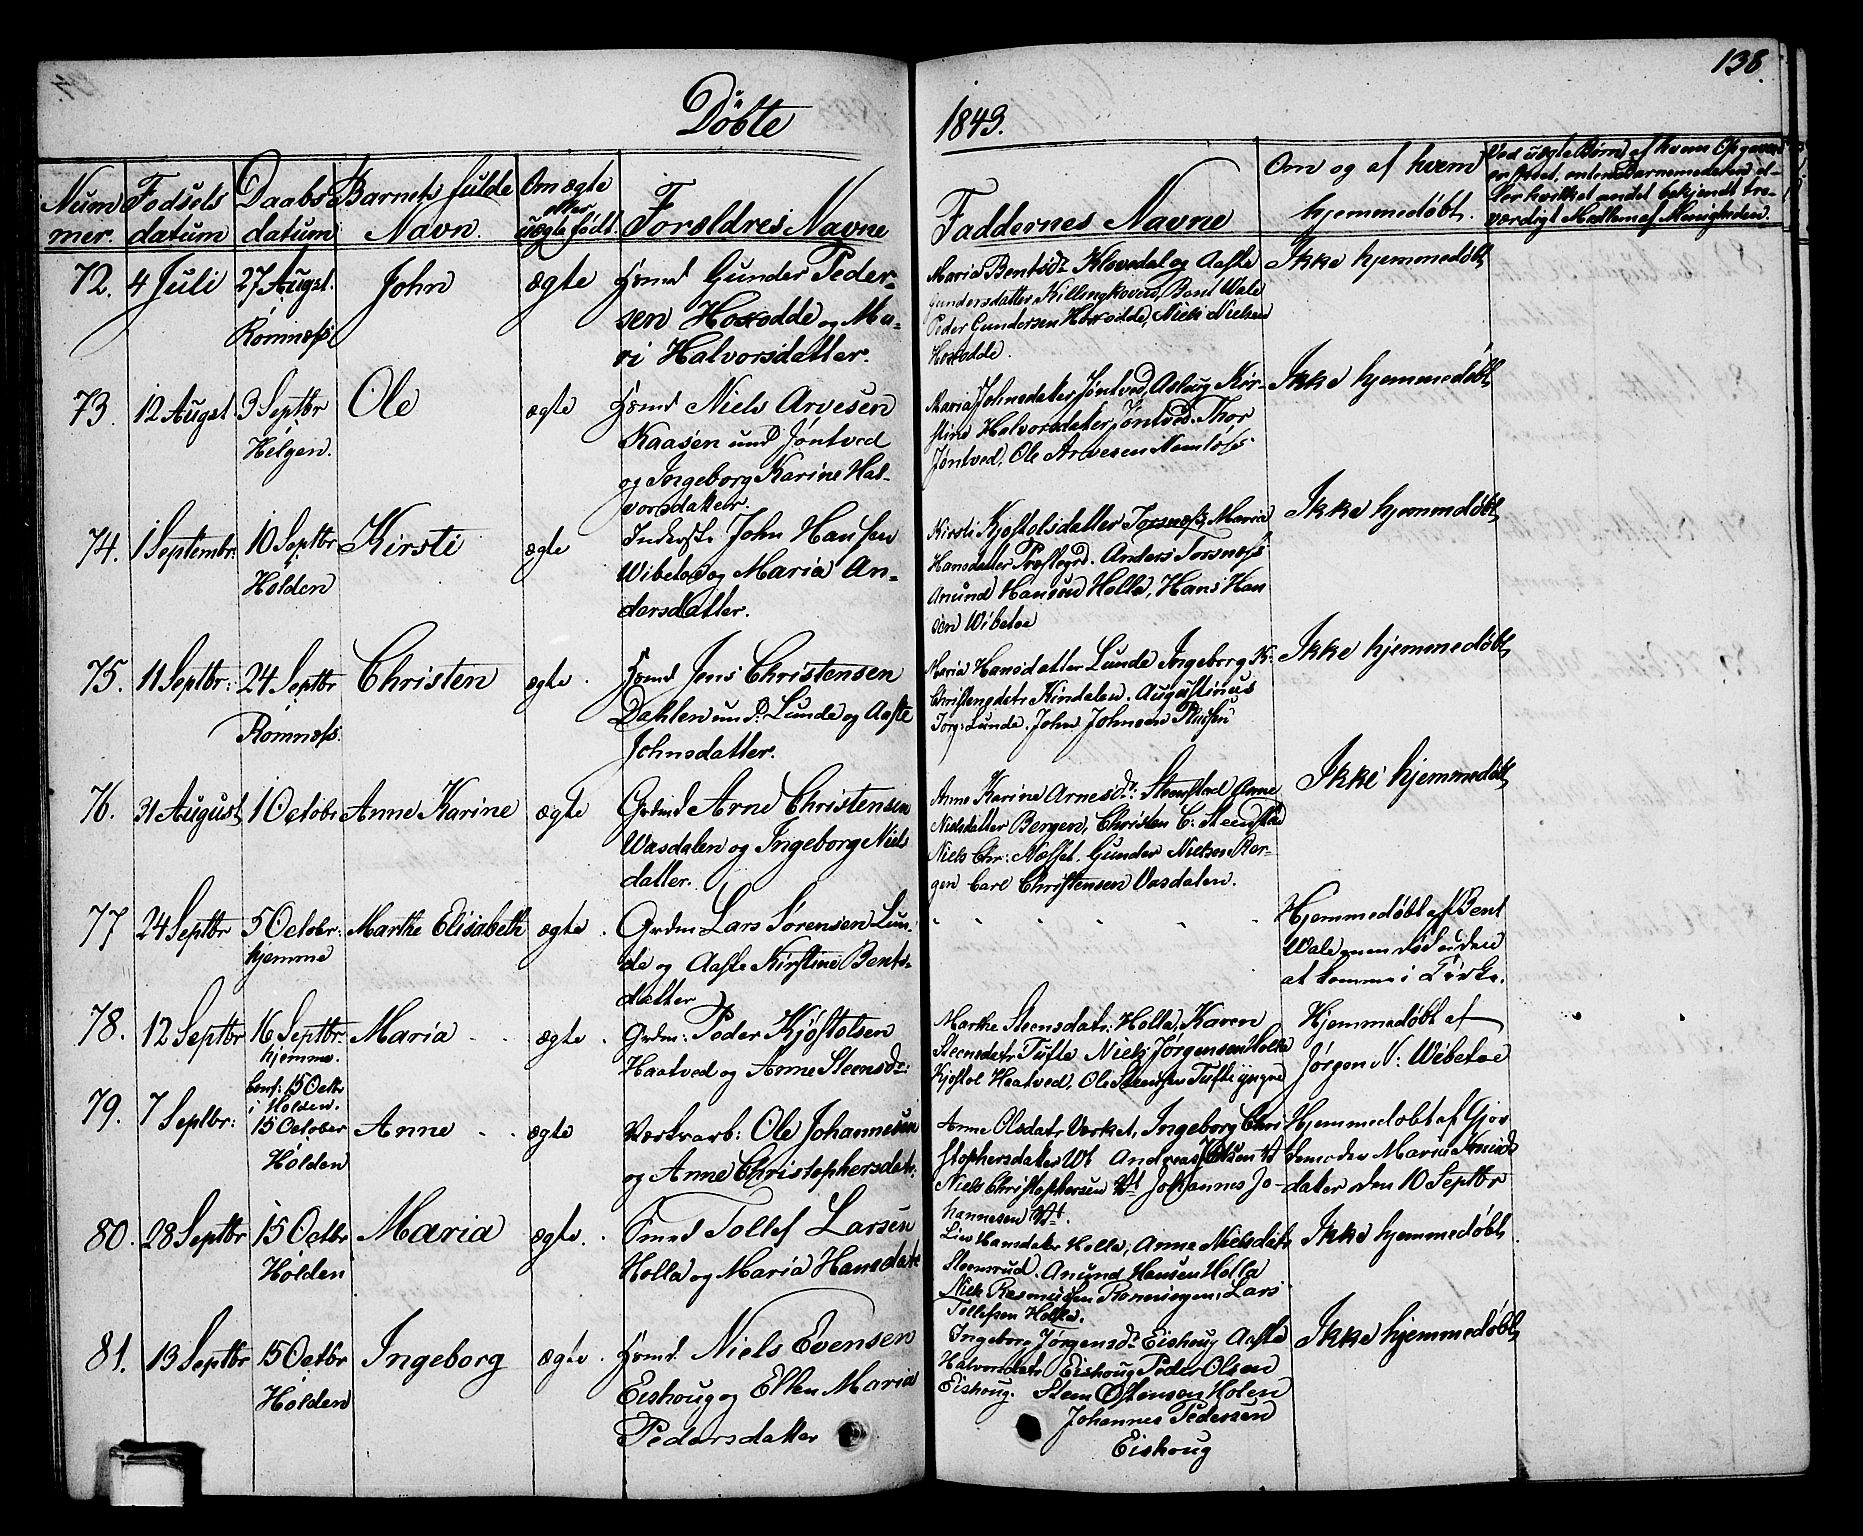 138.
Døbte
1843.
Num
mer.
Fødsels
datum
Daabs
datum
Barnets fulde
Navn.
Om ægte
eller
uægte født.
Foreldres Navne
Faddernes Navne
Om og af hvem
hjemmedøbt.
Ved uægte Børn, af hvem Opgaven
er skeet, enten Barnemoderen el-
ler hvilket andet bekjendt tro-
værdigt Medlem af Menigheden.
72. 4 Juli 27 Augst. John ægte Grmd Gunder Peder-
Romnæss
sen Hoxodde og Ma-
ri Halvorsdatter.
Maria Bentsdt Klovedal og Aaste
Gundersdatter Killingkoven, Bent Wale
Peder Gundersen Hoxodde, Niels Nielsen
Hoxodde.
Ikke hjemmedøbt
73. 12 Augst 3 Septbr Ole ægte Grmd Niels Arvesen
Helgen.
Kaasen und Jøntved
og Ingeborg Karine Hal-
vorsdatter.
Maria Johnsdater Jøntved, Aslaug Kir-
stine Halvorsdater Jøntved. Thor
Jøntved, Ole Arvesen Namløss
Ikke hjemmedøbt
74. 1 Septembr. 10 Septbr Kirsti ægte Inderst: John Hansen
Holden
Wibetoe og Maria An-
dersdatter.
Kirsti Kjøstolsdatter Torsnæss, Maria
Hansdatter Præstegrd. Anders Torsnæss
Anund Hansen Holla, Hans Han
sen Wibetoe
Ikke hjemmedøbt
75. 11 Septbr: 24 Septbr Christen ægte. Grmd Jens Christensen
Romnæss.
Dahlen und: Lunde og Aaste
Johnsdatter.
Maria Hansdatter Lunde Ingeborg K:
Christensdatr Kindalen. Augustinus
Jørg: Lunde. John Johnsen
Ikke hjemmedøbt
76. 31 August 1 Octobr Anne Karine ægte Grdmd Arne Christensen
Wasdalen og Ingeborg Niels
datter.
Anne Karine Arnesdtr: Steenstad Anne
Nielsdatter Bergen, Christen C: Steenstad
Niels Chr: Næsset. Gunder Nielsen Ber-
gen Carl Christensen Vasdalen.
Ikke hjemmedøbt
77 24 Septbr 5 Octobr: Marthe Elisabeth ægte. Grdm Lars Sørensen Lun-
hjemme
de og Aaste Kirstine Bents-
datter
Hjemmedøbt af Bent
Wale men død uden
at komme i Kirke.
78. 12 Septbr 16 Septbr. Maria ægte. Grdm: Peder Kjøstolsen
hjemme.
Haatved og Anne Steensdr:
Marthe Steensdatr: Holla, Karen
Steensdatr Tufte Niels Jørgensen Holla
Kjøstol Haatved, Ole Steensen Tufte yngre
Hjemmedøbt af
Jørgen N: Wibetoe
15 Octbr
i Holden.
79. 7 Septbr: 15 October Anne ægte Værksarb: Ole Johannesen
Holden
og Anne Christophersdatr.
Anne Olsdatr Værket, Ingeborg Chri
stophersdater Wt Andreas Olsen Wt
Niels Christophersen Wt Johannes Jo-
hannesen Wt.
Hjemmedøbt af Gjor
demoder Maria Knuds
dater den 10 Septbr
80. 28 Septbr 15 Octbr Maria ægte. Tollef Larsen
Holden
Holla og Maria Hansdatr
Liv Hansdater Holla, Anne Nielsdatr
Steensrud. Anund Hansen Holla
Niels Rasmussen Rønningen, Lars
Tollefsen Holla.
Ikke hjemmedøbt
81. 13 Septbr 15 Octbr Ingeborg ægte. Grmd. Niels Evensen
Holden
Eishoug og Ellen Maria
Pedersdatter
Ingeborg Jørgensdt Eishoug Aaste
Halvorsdatr Eishoug Peder Olsen
Eishoug. Steen Østensen Holen
Johannes Pedersen
Eishoug
Ikke hjemmedøbt